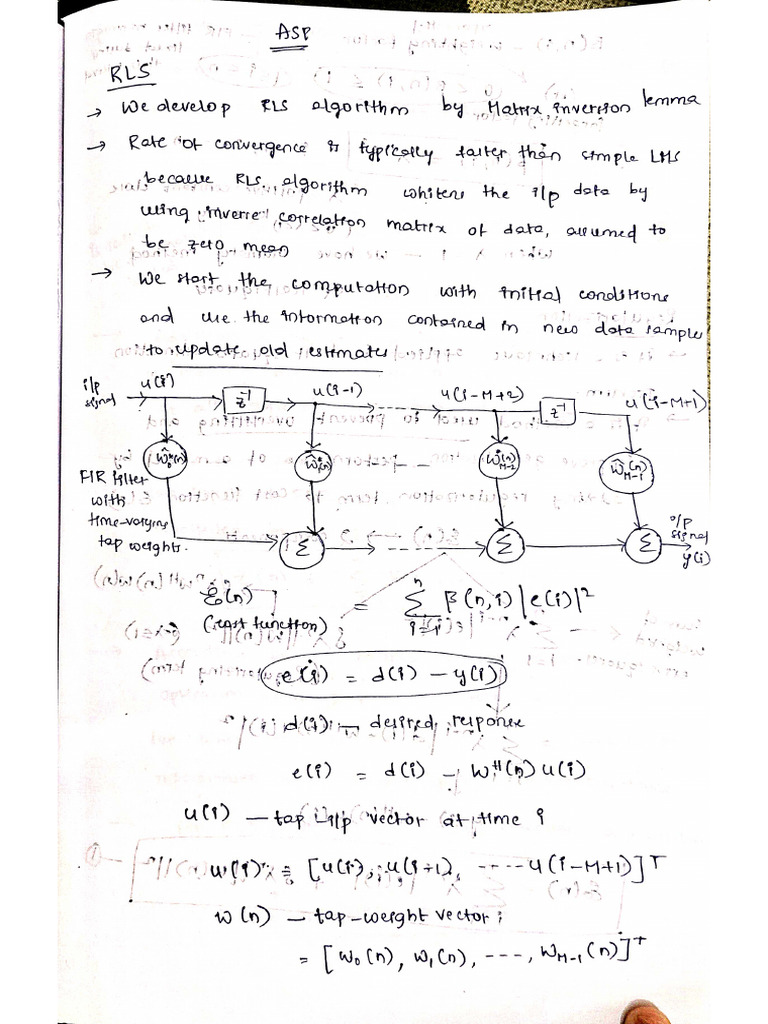 ASP
RLS
→ We develop RLS algorithm by Matrix inversion lemma
→ Rate of convergence is typically faster than simple LMS
because RLS algorithm whitens the i/p data by
using inverse correlation matrix of data, assumed to
be zero mean
→ We start the computation with initial conditions
and use the information contained in new data samples
to update old estimates
i/p signal u(i) z⁻¹ u(i-1) u(i-M+2) z⁻¹ u(i-M+1)
ŵ₀*(n) ŵ₁*(n) ŵ*M-2(n) ŵM-1(n)
FIR filter
with
time-varying
tap weights.
Σ Σ Σ o/p signal y(i)
ξ(n) = Σⁿᵢ₌₁ β(n,i) |e(i)|²
(cost function)
e(i) = d(i) - y(i)
d(i) - desired response
e(i) = d(i) - Wᴴ(n) u(i)
u(i) - tap i/p vector at time i
u(i) = [u(i), u(i-1), ----- u(i-M+1)]ᵀ
w(n) - tap-weight vector;
= [w₀(n), w₁(n), ---, wM-1(n)]ᵀ